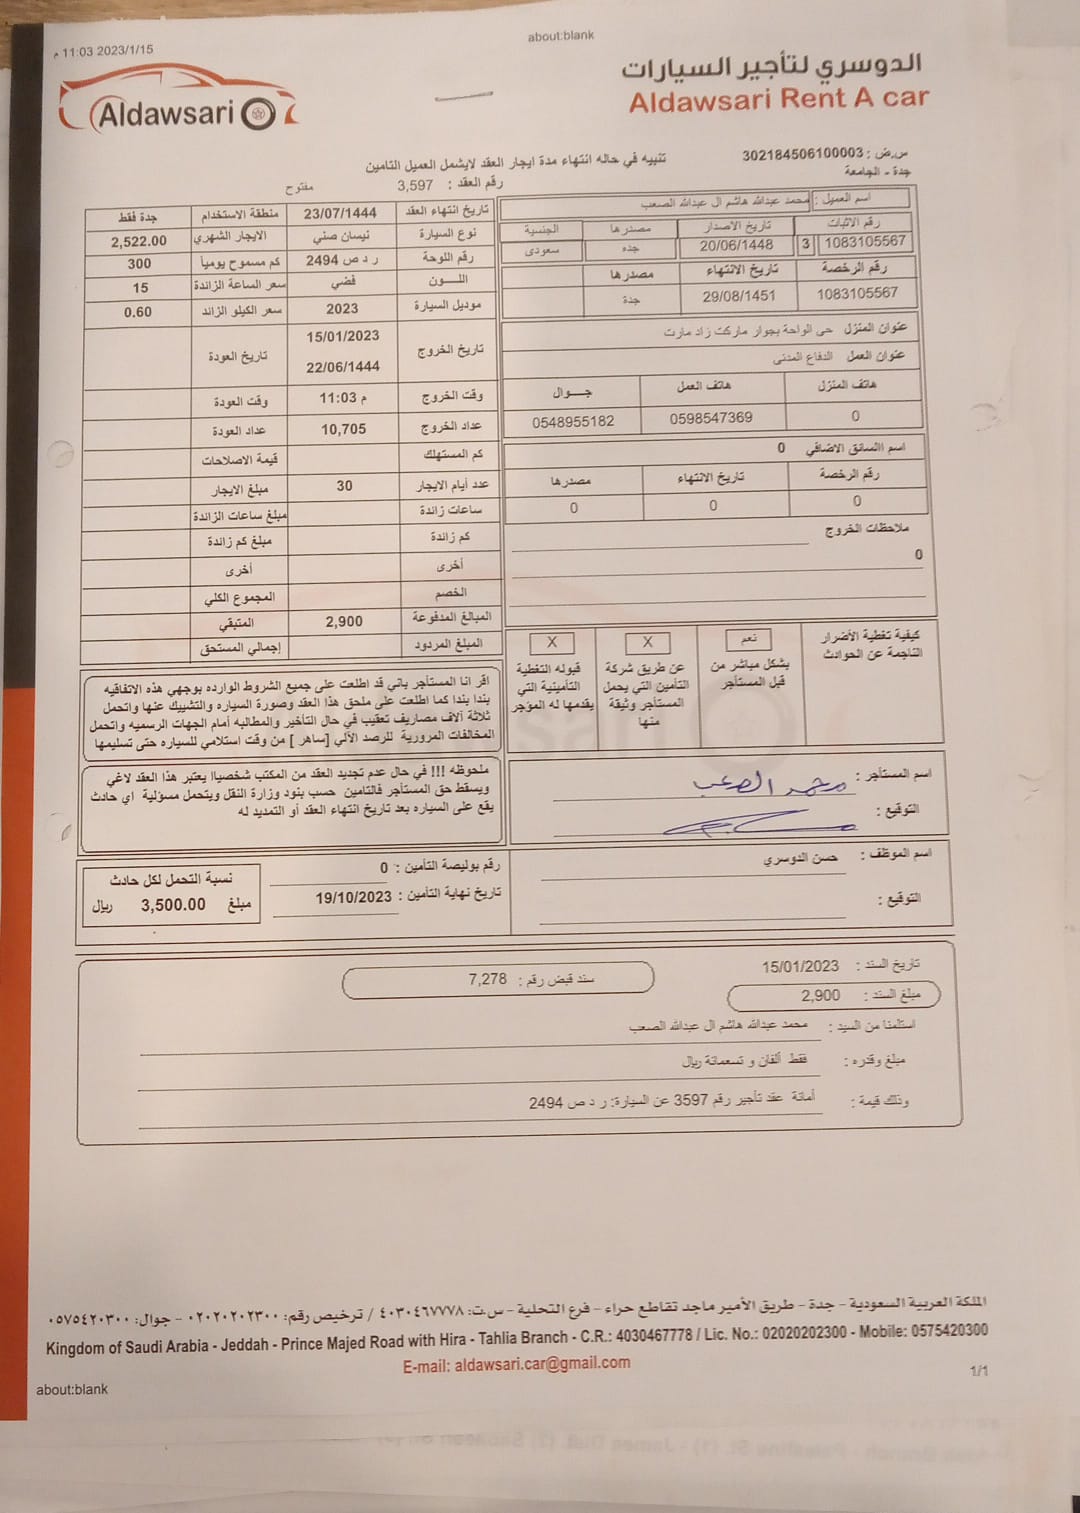 11:03 2023/1/15 م
about:blank
Aldawsari
الدوسري لتأجير السيارات
Aldawsari Rent A car
س.ض : 302184506100003
جدة - الجامعة
تنبيه في حاله انتهاء مدة ايجار العقد لايشمل العميل التامين
رقم العقد : 3,597
مفتوح
اسم العميل : محمد عبدالله هاشم ال عبدالله الصعب
رقم الاثبات تاريخ الاصدار مصدرها الجنسية
1083105567 3 20/06/1448 جده سعودى
رقم الرخصة تاريخ الانتهاء مصدرها
1083105567 29/08/1451 جدة
عنوان المنزل حى الواحة بجوار ماركت زاد مارت
عنوان العمل الدفاع المدنى
هاتف المنزل هاتف العمل جـــوال
0 0598547369 0548955182
اسم السائق الاضافي 0
رقم الرخصة تاريخ الانتهاء مصدرها
0 0 0
ملاحظات الخروج
0
تاريخ انتهاء العقد 23/07/1444 منطقة الاستخدام جدة فقط
نوع السيارة نيسان صني الايجار الشهري 2,522.00
رقم اللوحة ر د ص 2494 كم مسموح يوميا 300
اللـــون فضي سعر الساعة الزائدة 15
موديل السيارة 2023 سعر الكيلو الزائد 0.60
تاريخ الخروج 15/01/2023 22/06/1444 تاريخ العودة
وقت الخروج 11:03 م وقت العودة
عداد الخروج 10,705 عداد العودة
كم المستهلك قيمة الاصلاحات
عدد أيام الايجار 30 مبلغ الايجار
ساعات زائدة مبلغ ساعات الزائدة
كم زائدة مبلغ كم زائدة
أخرى أخرى
الخصم المجموع الكلي
المبالغ المدفوعة 2,900 المتبقي
المبلغ المردود إجمالي المستحق
كيفية تغطية الأضرار الناجمة عن الحوادث
نعم
بشكل مباشر من قبل المستأجر
X
عن طريق شركة التأمين التي يحمل المستأجر وثيقة منها
X
قبوله التغطية التأمينية التي يقدمها له المؤجر
اقر انا المستأجر باني قد اطلعت على جميع الشروط الوارده بوجهي هذه الاتفاقيه
بندا بندا كما اطلعت على ملحق هذا العقد وصورة السياره والتشييك عنها واتحمل
ثلاثة آلاف مصاريف تعقيب في حال التأخير والمطالبه أمام الجهات الرسميه واتحمل
المخالفات المرورية للرصد الآلي [ساهر ] من وقت استلامي للسياره حتى تسليمها
ملحوظه !!! في حال عدم تجديد العقد من المكتب شخصياا يعتبر هذا العقد لاغي
ويسقط حق المستأجر فالتامين حسب بنود وزارة النقل ويتحمل مسؤلية اي حادث
يقع على السياره بعد تاريخ انتهاء العقد أو التمديد له
اسم المستأجر : محمد الصعب
التوقيع :
اسم الموظف : حسن الدوسري
التوقيع :
رقم بوليصة التأمين : 0
تاريخ نهاية التأمين : 19/10/2023
نسبة التحمل لكل حادث
مبلغ 3,500.00 ريال
تاريخ السند : 15/01/2023
سند قبض رقم : 7,278
مبلغ السند : 2,900
استلمنا من السيد : محمد عبدالله هاشم ال عبدالله الصعب
مبلغ وقدره : فقط ألفان و تسعمائة ريال
وذلك قيمة : أمانة عقد تأجير رقم 3597 عن السيارة: ر د ص 2494
الملكة العربية السعودية - جدة - طريق الأمير ماجد تقاطع حراء - فرع التحلية - س.ت: ٤٠٣٠٤٦٧٧٧٨ / ترخيص رقم: ٠٢٠٢٠٢٠٢٣٠٠ - جوال: ٠٥٧٥٤٢٠٣٠٠
Kingdom of Saudi Arabia - Jeddah - Prince Majed Road with Hira - Tahlia Branch - C.R.: 4030467778 / Lic. No.: 02020202300 - Mobile: 0575420300
E-mail: aldawsari.car@gmail.com
1/1
about:blank